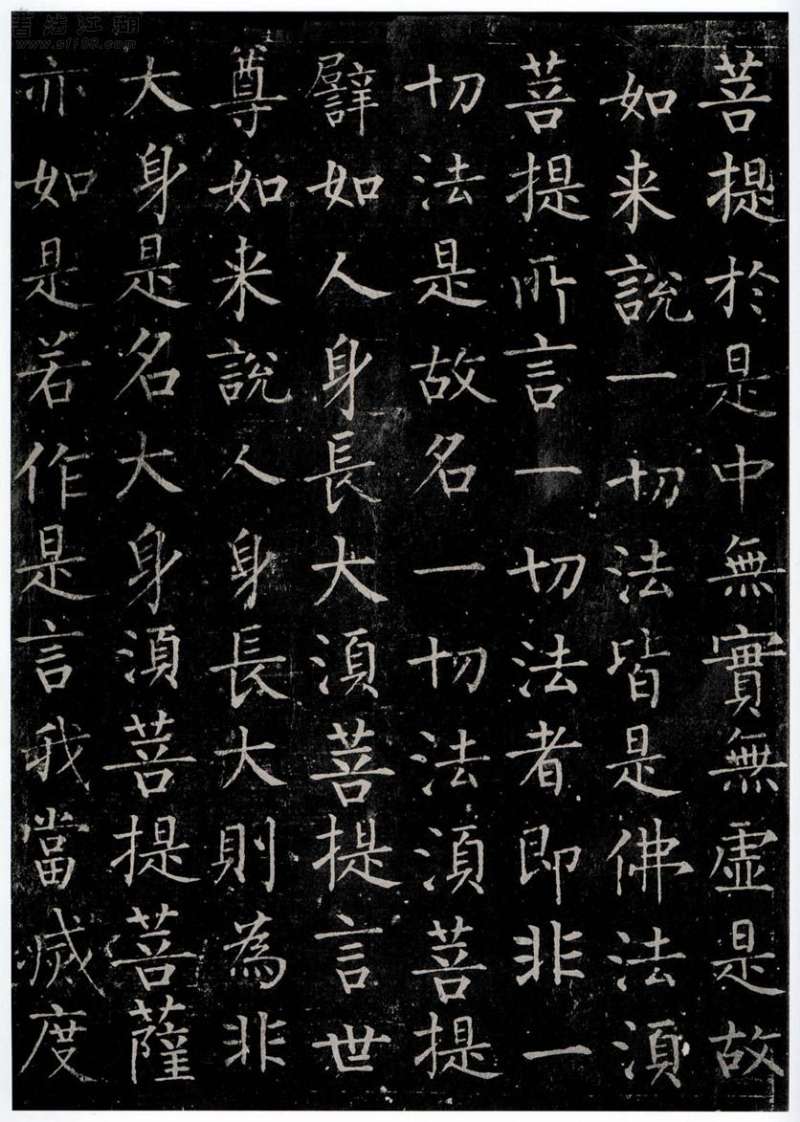 菩提於是中無實無虛是故
如来說一切法皆是佛法湏
菩提所言一切法者即非一
切法是故名一切法湏菩提
譬如人身長大湏菩提言世
尊如来說人身長大則為非
大身是名大身湏菩提菩薩
亦如是若作是言我當滅度
書法江湖